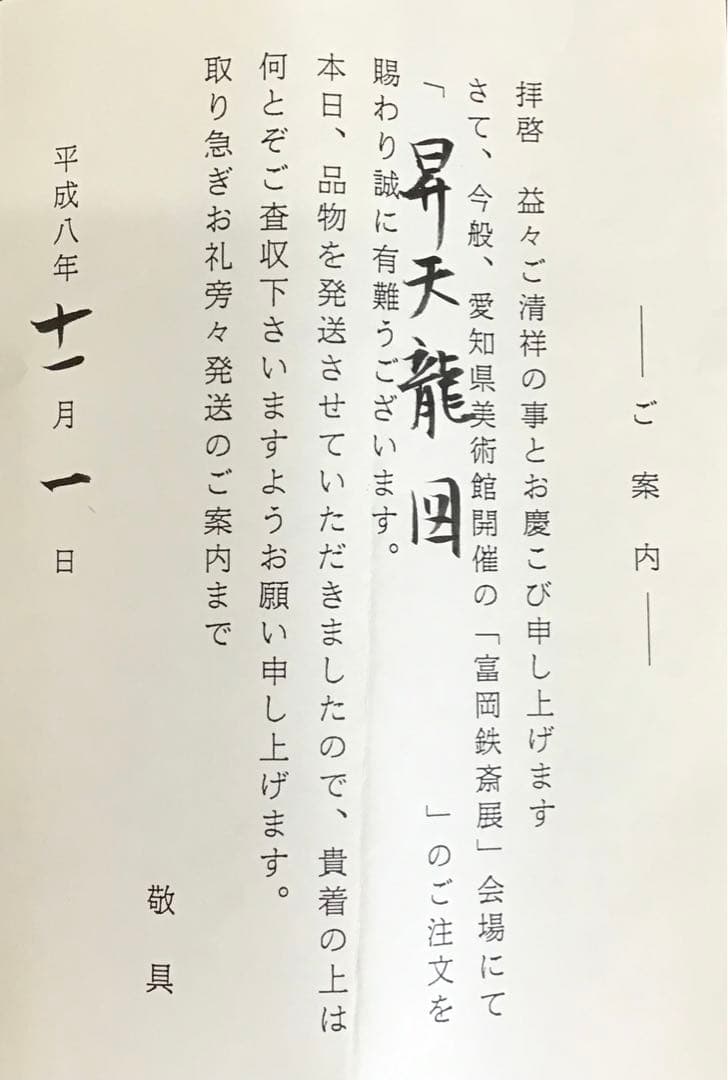 ―ご案内―
拝啓　益々ご清祥の事とお慶こび申し上げます
さて、今般、愛知県美術館開催の「富岡鉄斎展」会場にて
「昇天龍図」のご注文を
賜わり誠に有難うございます。
本日、品物を発送させていただきましたので、貴着の上は
何とぞご査収下さいますようお願い申し上げます。
取り急ぎお礼旁々発送のご案内まで
敬具
平成八年十一月一日